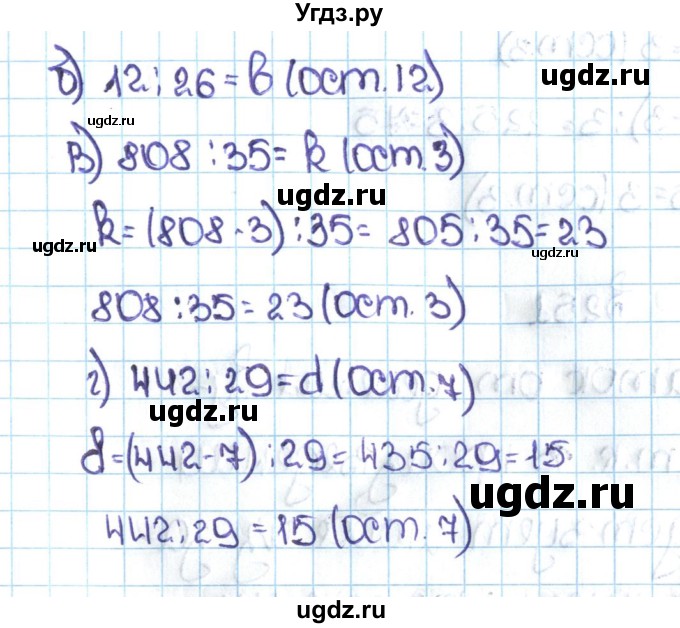 Угдз.ру
б) 12:26=b (ост. 12)
ugdz.ru
ugdz.ru
в) 808:35=k (ост. 3)
ugdz.ru
k=(808-3):35=805:35=23
ugdz.ru
ugdz.ru
808:35=23 (ост. 3)
ugdz.ru
г) 442:29=d (ост. 7)
ugdz.ru
d=(442-7):29=435:29=15
ugdz.ru
442:29=15 (ост. 7)
ugdz.ru
ugdz.ru